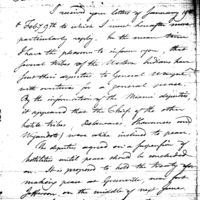 I received your letter of January 19th
& Feby 9th to which I must hereafter more
particularly reply. In the mean time
I have the pleasure to inform you, that
several tribes of the Western Indians have
sent their deputies to General Wayne
with overtures for a general peace.
By the information of the Miamie deputies
it appeared that the Chiefs of the other
hostile tribes Delawares, Shawnees and
Wyandots) were also inclined to peace.
The deputies agreed on a suspension of
hostilities until peace should be concluded
on. It is proposed to hold the Treaty for
making peace at Greenville, near fort
Jefferson, on the middle of next June